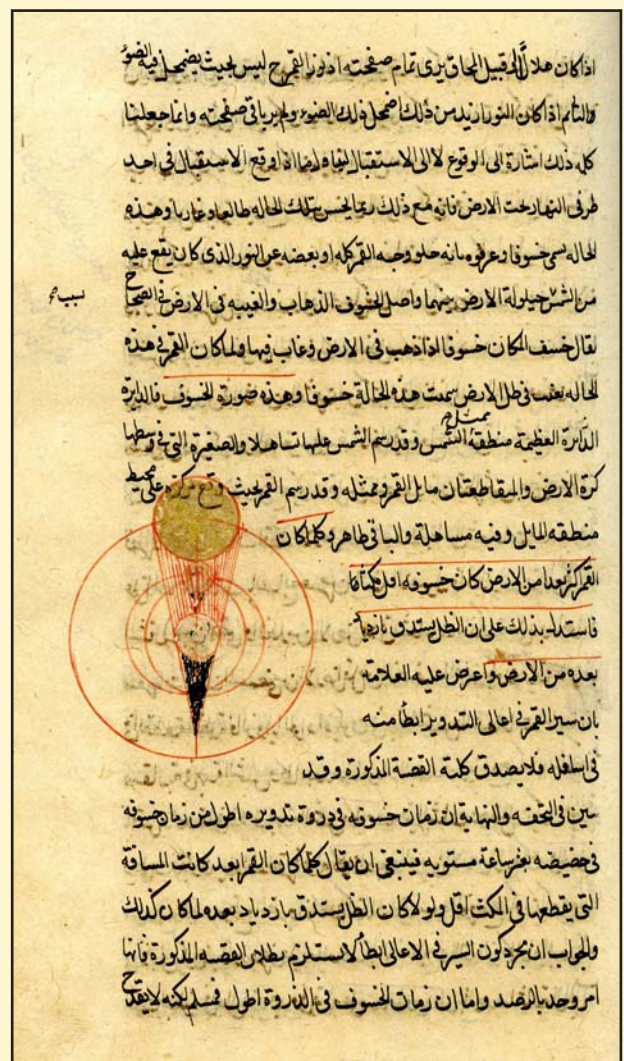 اذا كان هلالا الى قبيل المحاق يرى تمام صفحته اذ نور القمر ح ليس بحيث يضمحل فيه الضوء
كان النور ازيد من ذلك اضمحل ذلك الضوء ولم ير باقي صفحته وانما جعلنا
كل ذلك اشارة الى الوقوع لا الى الاستقبال اذا وقع الاستقبال في احد
طرفي النهار تحت الارض فانه مع ذلك ربما بتلك الحاله طالعا وغاربا وهذه
الحاله يسمى خسوفا وعرفوه بانه خلو وجه القمر كله او بعضه عن النور الذى كان يقع عليه
من الشمس حيلولة الارض بينهما واصل الخسوف الذهاب والغيبه فى الارض فى الصحاح
يقال خسف المكان خسوفا اذا ذهب فى الارض وغاب فيها ولما كان القمر فى هذه
الحاله يغيب فى ظل الارض سميت هذه الحالة خسوفا وهذه صورة الخسوف فالدايرة
ممثل
الدايرة العظيمة منطقة الشمس وقد رسم الشمس عليها تساهلا والصغيرة التى فى وسطها
كرة الارض والمتقاطعتان مايل القمر وممثله وقد رسم القمر بحيث وقع مركزه على محيط
منطقه المايل وفيه مساهلة والباقى ظاهر وكلما كان
القمر اكثر بعدا من الارض كان خسوفه اقل مكثا
فاستدل بذلك على ان الظل يستدق بازدياد
بعده من الارض واعرض عليه العلامه
بان سير القمر فى اعالى التدوير ابطأ منه
فى اسافله فلا يصدق كلية القضية المذكورة وقد
بين فى التحفه والنهاية ان زمان خسوفه فى ذروة تدويره اطول من زمان خسوفه
فى حضيضه ساعة مستويه فينبغى ان يقال كلما كان القمر ابعد كانت المسافة
التى يقطعها فى المكث اقل ولولا كان الظل يستدق بازدياد بعده لما كان كذلك
والجواب ان مجرد كون السير فى الاعالى ابطأ لا يستلزم بطلان القضيه المذكورة فانها
امر وجد بالرصد واما ان زمان الخسوف فى الذروة اطول فمسلم لكنه لا يقدح